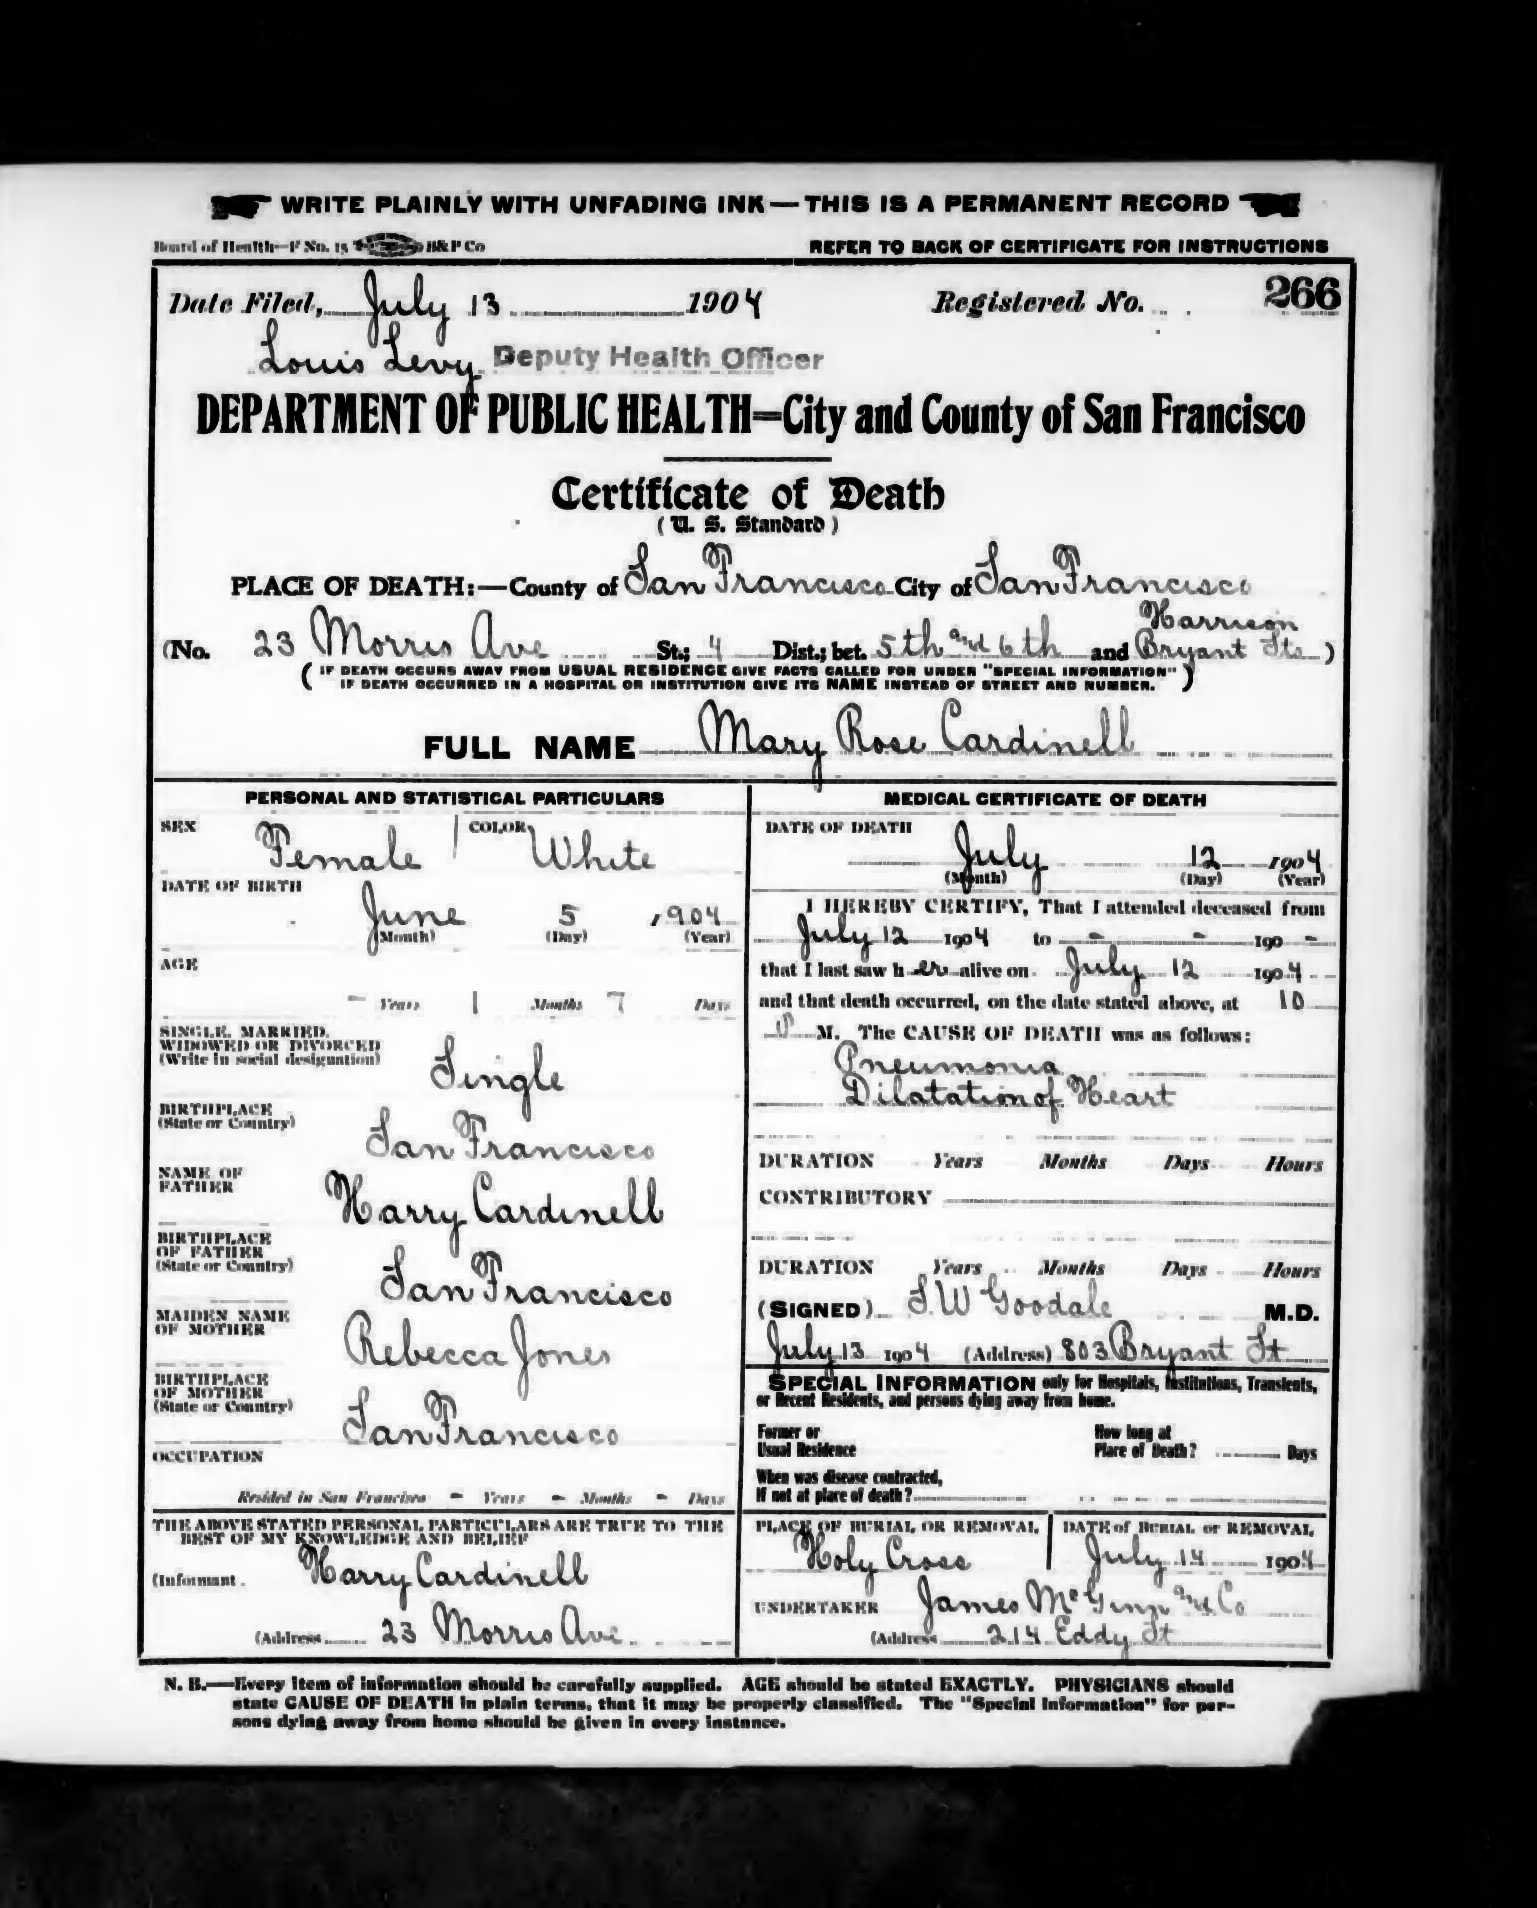 WRITE PLAINLY WITH UNFADING INK—THIS IS A PERMANENT RECORD
Board of Health—F No. 15 B&P Co REFER TO BACK OF CERTIFICATE FOR INSTRUCTIONS
Date Filed, July 13 1904 Registered No. 266
Louis Levy Deputy Health Officer
DEPARTMENT OF PUBLIC HEALTH=City and County of San Francisco
Certificate of Death
(U. S. Standard)
PLACE OF DEATH:—County of San Francisco City of San Francisco
Harrison
(No. 23 Morris Ave St.; 4 Dist.; bet. 5th and 6th and Bryant Sts)
(IF DEATH OCCURS AWAY FROM USUAL RESIDENCE GIVE FACTS CALLED FOR UNDER "SPECIAL INFORMATION"
IF DEATH OCCURRED IN A HOSPITAL OR INSTITUTION GIVE ITS NAME INSTEAD OF STREET AND NUMBER.)
FULL NAME Mary Rose Cardinell
PERSONAL AND STATISTICAL PARTICULARS
SEX Female COLOR White
DATE OF BIRTH
June 5 1904
(Month) (Day) (Year)
AGE
- Years 1 Months 7 Days
SINGLE, MARRIED,
WIDOWED OR DIVORCED
(Write in social designation) Single
BIRTHPLACE
(State or Country) San Francisco
NAME OF
FATHER Harry Cardinell
BIRTHPLACE
OF FATHER
(State or Country) San Francisco
MAIDEN NAME
OF MOTHER Rebecca Jones
BIRTHPLACE
OF MOTHER
(State or Country) San Francisco
OCCUPATION
Resided in San Francisco - Years - Months - Days
THE ABOVE STATED PERSONAL PARTICULARS ARE TRUE TO THE
BEST OF MY KNOWLEDGE AND BELIEF
(Informant Harry Cardinell
(Address 23 Morris Ave
MEDICAL CERTIFICATE OF DEATH
DATE OF DEATH
July 12 1904
(Month) (Day) (Year)
I HEREBY CERTIFY, That I attended deceased from
July 12 1904 to - - 190 -
that I last saw her alive on July 12 1904
and that death occurred, on the date stated above, at 10
P M. The CAUSE OF DEATH was as follows:
Pneumonia
Dilatation of Heart
DURATION Years Months Days Hours
CONTRIBUTORY
DURATION Years Months Days Hours
(SIGNED) S. W Goodale M.D.
July 13 1904 (Address) 803 Bryant St
SPECIAL INFORMATION only for Hospitals, Institutions, Transients,
or Recent Residents, and persons dying away from home.
Former or
Usual Residence
How long at
Place of Death? Days
When was disease contracted,
If not at place of death?
PLACE OF BURIAL OR REMOVAL
Holy Cross
DATE of BURIAL or REMOVAL
July 14 1904
UNDERTAKER James McGinn and Co
(Address 214 Eddy St
N. B.—Every item of information should be carefully supplied. AGE should be stated EXACTLY. PHYSICIANS should
state CAUSE OF DEATH in plain terms, that it may be properly classified. The "Special Information" for per-
sons dying away from home should be given in every instance.